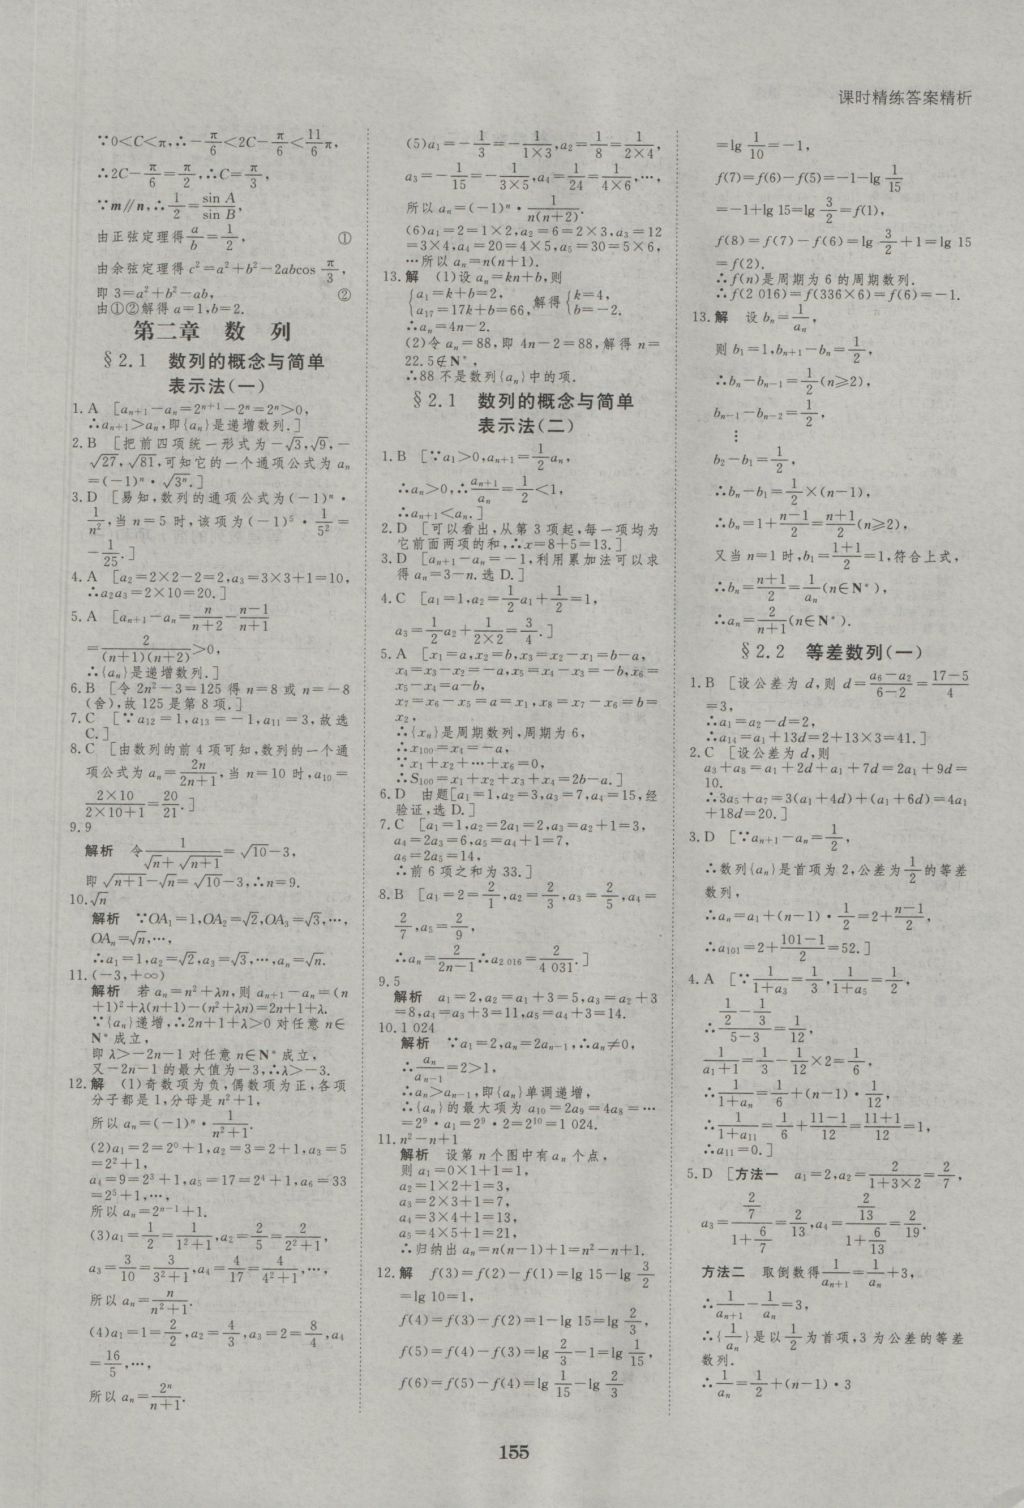 课时精练答案精析
∵0<C<π,∴-π/6<2C-π/6<11/6π,
∴2C-π/6=π/2,∴C=π/3,
∵m∥n,∴1/2=sin A/sin B,
由正弦定理得a/b=1/2, ①
由余弦定理得c²=a²+b²-2abcos π/3,
即3=a²+b²-ab, ②
由①②解得a=1,b=2.
第二章 数 列
§2.1 数列的概念与简单
表示法(一)
1.A [aₙ₊₁-aₙ=2ⁿ⁺¹-2ⁿ=2ⁿ>0,
∴aₙ₊₁>aₙ,即{aₙ}是递增数列.]
2.B [把前四项统一形式为-√3,√9,-
√27,√81,可知它的一个通项公式为aₙ
=(-1)ⁿ·√3ⁿ.]
3.D [易知,数列的通项公式为(-1)ⁿ·
1/n²,当n=5时,该项为(-1)⁵·1/5²=
-1/25.]
4.A [a₂=2×2-2=2,a₃=3×3+1=10,
∴a₂a₃=2×10=20.]
5.A [aₙ₊₁-aₙ=n/(n+2)-(n-1)/(n+1)
=2/((n+1)(n+2))>0,
∴{aₙ}是递增数列.]
6.B [令2n²-3=125得n=8或n=-8
(舍),故125是第8项.]
7.C [∵a₁₂=1,a₁₃=-1,a₁₁=3,故选
C.]
8.C [由数列的前4项可知,数列的一个通
项公式为aₙ=2n/(2n+1),当n=10时,a₁₀=
(2×10)/(2×10+1)=20/21.]
9.9
解析 令1/(√n+√(n+1))=√10-3,
即√(n+1)-√n=√10-3,∴n=9.
10.√n
解析 ∵OA₁=1,OA₂=√2,OA₃=√3,…,
OAₙ=√n,…,
∴a₁=1,a₂=√2,a₃=√3,…,aₙ=√n.
11.(-3,+∞)
解析 若aₙ=n²+λn,则aₙ₊₁-aₙ=(n
+1)²+λ(n+1)-(n²+λn)=2n+1+λ.
∵{aₙ}递增,∴2n+1+λ>0对任意n∈
N*成立,
即λ>-2n-1对任意n∈N*成立,
又-2n-1的最大值为-3,∴λ>-3.
12.解 (1)奇数项为负,偶数项为正,各项
分子都是1,分母是n²+1,
所以aₙ=(-1)ⁿ·1/(n²+1).
(2)a₁=2=2⁰+1,a₂=3=2+1,a₃=5
=2²+1,
a₄=9=2³+1,a₅=17=2⁴+1,a₆=33
=2⁵+1,…,
所以aₙ=2ⁿ⁻¹+1.
(3)a₁=1/2=1/(1²+1),a₂=2/5=2/(2²+1),
a₃=3/10=3/(3²+1),a₄=4/17=4/(4²+1),…,
所以aₙ=n/(n²+1).
(4)a₁=1=2/2,a₂=4/3,a₃=2=8/4,a₄
=16/5,…,
所以aₙ=2ⁿ/(n+1).
(5)a₁=-1/3=-1/(1×3),a₂=1/8=1/(2×4),
a₃=-1/15=-1/(3×5),a₄=1/24=1/(4×6),…,
所以aₙ=(-1)ⁿ·1/(n(n+2)).
(6)a₁=2=1×2,a₂=6=2×3,a₃=12
=3×4,a₄=20=4×5,a₅=30=5×6,
…所以aₙ=n(n+1).
13.解 (1)设aₙ=kn+b,则
{a₁=k+b=2, a₁₇=17k+b=66, 解得{k=4, b=-2.
∴aₙ=4n-2.
(2)令aₙ=88,即4n-2=88,解得n=
22.5∉N*,
∴88不是数列{aₙ}中的项.
§2.1 数列的概念与简单
表示法(二)
1.B [∵a₁>0,aₙ₊₁=1/2aₙ,
∴aₙ>0,∴aₙ₊₁/aₙ=1/2<1,
∴aₙ₊₁<aₙ.]
2.D [可以看出,从第3项起,每一项均为
它前面两项的和,∴x=8+5=13.]
3.D [aₙ₊₁-aₙ=-1,利用累加法可以求
得aₙ=3-n.选D.]
4.C [a₁=1,a₂=1/2a₁+1/2=1,
a₃=1/2a₂+1/(2×2)=3/4.]
5.A [x₁=a,x₂=b,x₃=x₂-x₁=b-a,
x₄=x₃-x₂=-a,x₅=x₄-x₃=-b,x₆=
x₅-x₄=a-b,
x₇=x₆-x₅=a=x₁,x₈=x₇-x₆=b=
x₂,
∴{xₙ}是周期数列,周期为6,
∴x₁₀₀=x₄=-a,
∵x₁+x₂+…+x₆=0,
∴S₁₀₀=x₁+x₂+x₃+x₄=2b-a.]
6.D 由题[a₁=1,a₂=3,a₃=7,a₄=15,经
验证,选D.]
7.C [a₁=1,a₂=2a₁=2,a₃=a₂+1=3,
a₄=2a₃=6,a₅=a₄+1=7,
a₆=2a₅=14,
∴前6项之和为33.]
8.B [a₁=2=2/1,a₂=2/3,a₃=2/5,a₄=
2/7,a₅=2/9,
∴aₙ=2/(2n-1)∴a₂ ₀₁₆=2/4 031.]
9.5
解析 a₁=2,a₂=a₁+3=5,a₃=a₂+3
=8,a₄=a₃+3=11,a₅=a₄+3=14.
10.1 024
解析 ∵a₁=2,aₙ=2aₙ₋₁,∴aₙ≠0,
∴aₙ/aₙ₋₁=2>1,
∴aₙ>aₙ₋₁,即{aₙ}单调递增,
∴{aₙ}的最大项为a₁₀=2a₉=4a₈=…
=2⁹·a₁=2⁹·2=2¹⁰=1 024.
11.n²-n+1
解析 设第n个图中有aₙ个点,
则a₁=0×1+1=1,
a₂=1×2+1=3,
a₃=2×3+1=7,
a₄=3×4+1=13,
a₅=4×5+1=21,
∴归纳出aₙ=n(n-1)+1=n²-n+1.
12.解 f(3)=f(2)-f(1)=lg 15-lg 3/2
=lg 10=1,
f(4)=f(3)-f(2)=1-lg 15=lg 2/3,
f(5)=f(4)-f(3)=lg 2/3-1=lg 1/15,
f(6)=f(5)-f(4)=lg 1/15-lg 2/3
=lg 1/10=-1,
f(7)=f(6)-f(5)=-1-lg 1/15
=-1+lg 15=lg 3/2=f(1),
f(8)=f(7)-f(6)=lg 3/2+1=lg 15
=f(2).
∴f(n)是周期为6的周期数列.
∴f(2 016)=f(336×6)=f(6)=-1.
13.解 设bₙ=1/aₙ,
则b₁=1,bₙ₊₁-bₙ=1/2,
∴bₙ-bₙ₋₁=1/2(n≥2),
bₙ₋₁-bₙ₋₂=1/2,
⋮
b₂-b₁=1/2,
∴bₙ-b₁=1/2×(n-1),
∴bₙ=1+(n-1)/2=(n+1)/2(n≥2),
又当n=1时,b₁=(1+1)/2=1,符合上式,
∴bₙ=(n+1)/2=1/aₙ(n∈N*),
∴aₙ=2/(n+1)(n∈N*).
§2.2 等差数列(一)
1.B [设公差为d,则d=(a₆-a₂)/(6-2)=(17-5)/4
=3,
∴a₁=a₂-d=2,
∴a₁₄=a₁+13d=2+13×3=41.]
2.C [设公差为d,则
a₃+a₈=a₁+2d+a₁+7d=2a₁+9d=
10.
∴3a₅+a₇=3(a₁+4d)+(a₁+6d)=4a₁
+18d=20.]
3.D [∵aₙ₊₁-aₙ=1/2,
∴数列{aₙ}是首项为2,公差为1/2的等差
数列,
∴aₙ=a₁+(n-1)·1/2=2+(n-1)/2,
∴a₁₀₁=2+(101-1)/2=52.]
4.A [∵1/(1+a₃)=1/3,1/(1+a₅)=1/2,
∴(1/2-1/3)/(5-3)=1/12,
1/(a₁+1)=1/3-1/12×2=1/6,
∴1/(1+aₙ)=1/6+(n-1)·1/12,
∴1/(1+a₁₁)=1/6+(11-1)/12=(11+1)/12=1,
∴a₁₁=0.]
5.D [方法一 a₁=2,a₂=2/(1+3×2)=2/7,
a₃=(2/7)/(1+6/7)=2/13,a₄=(2/13)/(1+6/13)=2/19.
方法二 取倒数得1/aₙ₊₁=1/aₙ+3,
∴1/aₙ₊₁-1/aₙ=3,
∴{1/aₙ}是以1/2为首项,3为公差的等差
数列.
∴1/aₙ=1/2+(n-1)·3
155